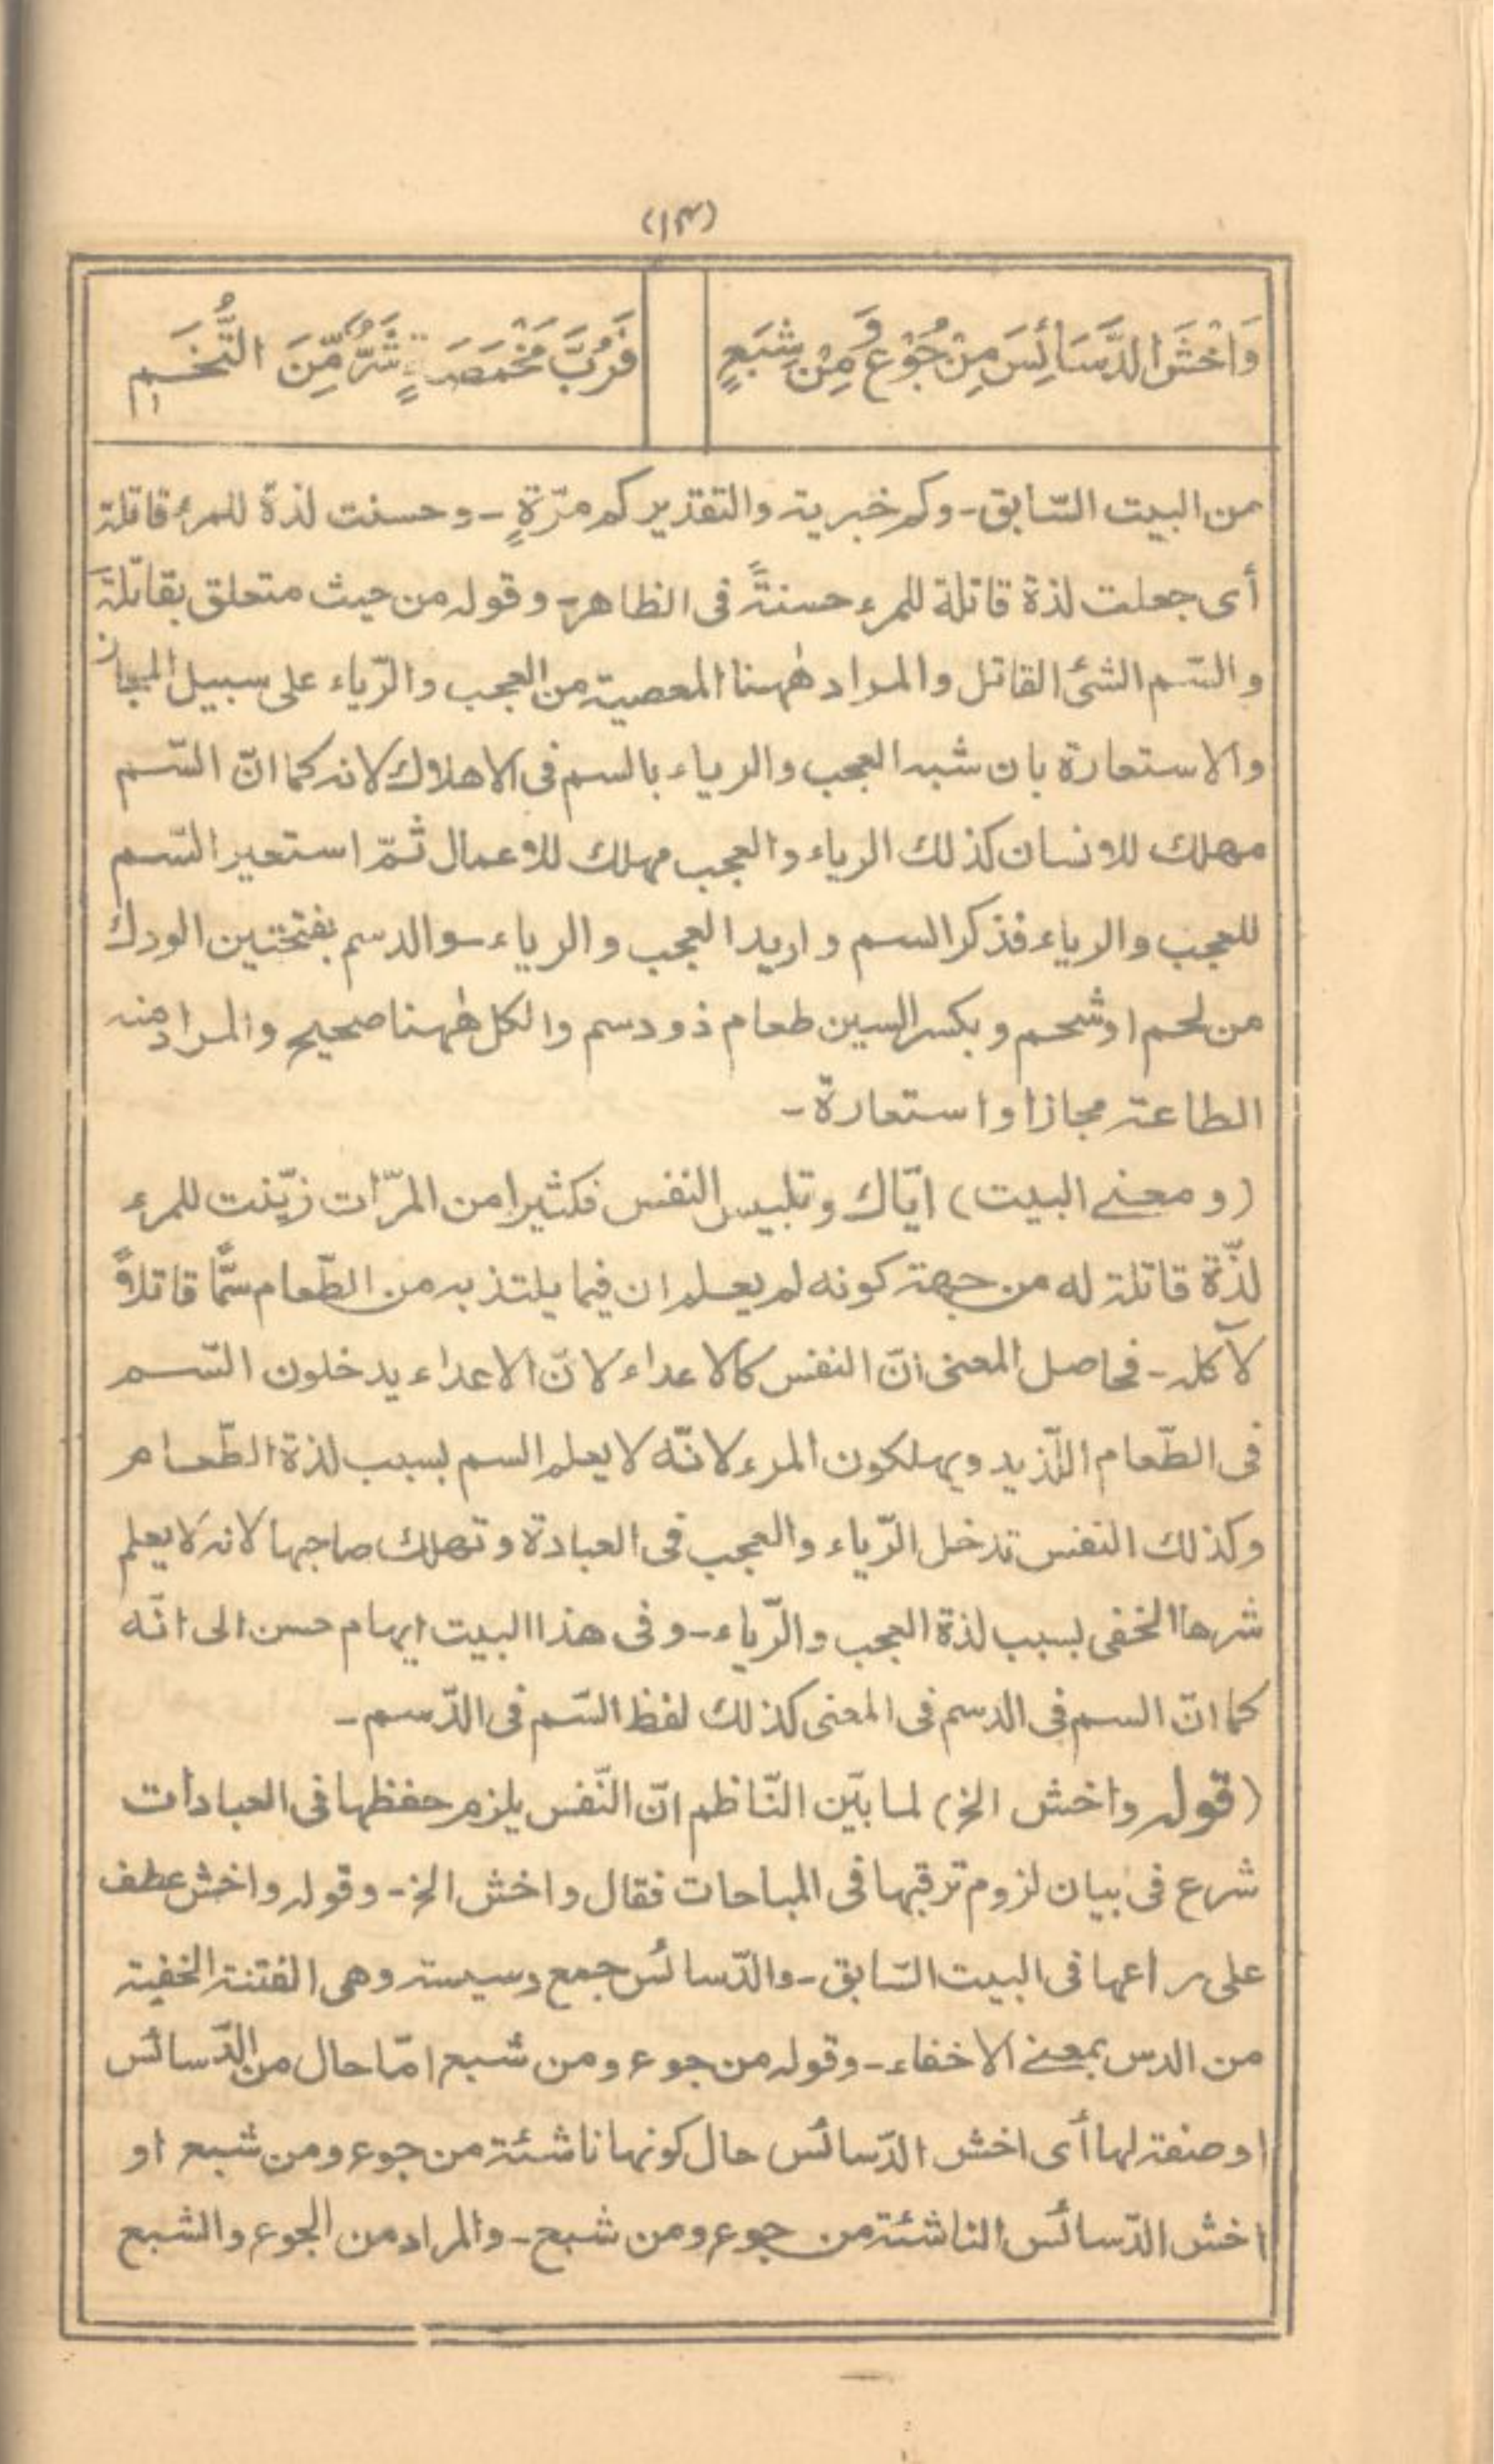 (١٣)
وَاخْشَ الدَّسَائِسَ مِنْ جُوْعٍ وَمِنْ شِبَعٍ
فَرُبَّ مَخْمَصَةٍ شَرٌّ مِّنَ التُّخَمِ
من البيت السّابق - وكم خبرية والتقدير كم مرّةٍ - وحسنت لذة للمرء قاتلة
أى جعلت لذة قاتلة للمرء حسنةً فى الظاهر - وقوله من حيث متعلق بقاتلة
والسّم الشئ القاتل والمراد ههنا المعصية من العجب والرّياء على سبيل المجاز
والاستعارة بان شبه العجب والرياء بالسم فى الاهلاك لانه كما انّ السّم
مهلك للانسان كذلك الرياء والعجب مهلك للاعمال ثمّ استعير السّم
للعجب والرياء فذكر السم واريد العجب والرياء - والدسم بفتحتين الودك
من لحم او شحم وبكسر السين طعام ذو دسم والكل ههنا صحيح والمراد منه
الطاعة مجازا واستعارة -
(ومعنے البيت) ايّاك وتلبيس النفس فكثيرا من المرّات زيّنت للمرء
لذّة قاتلة له من جهة كونه لم يعلم ان فيما يلتذ به من الطّعام سمًّا قاتلاً
لآكله - فحاصل المعنى انّ النفس كالاعداء لانّ الاعداء يدخلون السّم
فى الطّعام اللّذيد ويهلكون المرء لانّه لا يعلم السم بسبب لذة الطّعام
وكذلك النفس تدخل الرّياء والعجب فى العبادة وتهلك صاحبها لانه لا يعلم
شرها الخفى بسبب لذة العجب والرّياء - وفى هذا البيت ايهام حسن الى انّه
كما انّ السم فى الدسم فى المعنى كذلك لفظ السّم فى الدّسم -
(قوله واخش الخ) لما بيّن النّاظم انّ النّفس يلزم حفظها فى العبادات
شرع فى بيان لزوم ترقبها فى المباحات فقال واخش الخ - وقوله واخش عطف
على راعها فى البيت السّابق - والدّسائس جمع دسيسة وهى الفتنة الخفية
من الدس بمعنے الاخفاء - وقوله من جوع ومن شبع امّا حال من الدّسائس
او صفة لها أى اخش الدّسائس حال كونها ناشئة من جوع ومن شبع او
اخش الدّسائس الناشئة من جوع ومن شبع - والمراد من الجوع والشبع